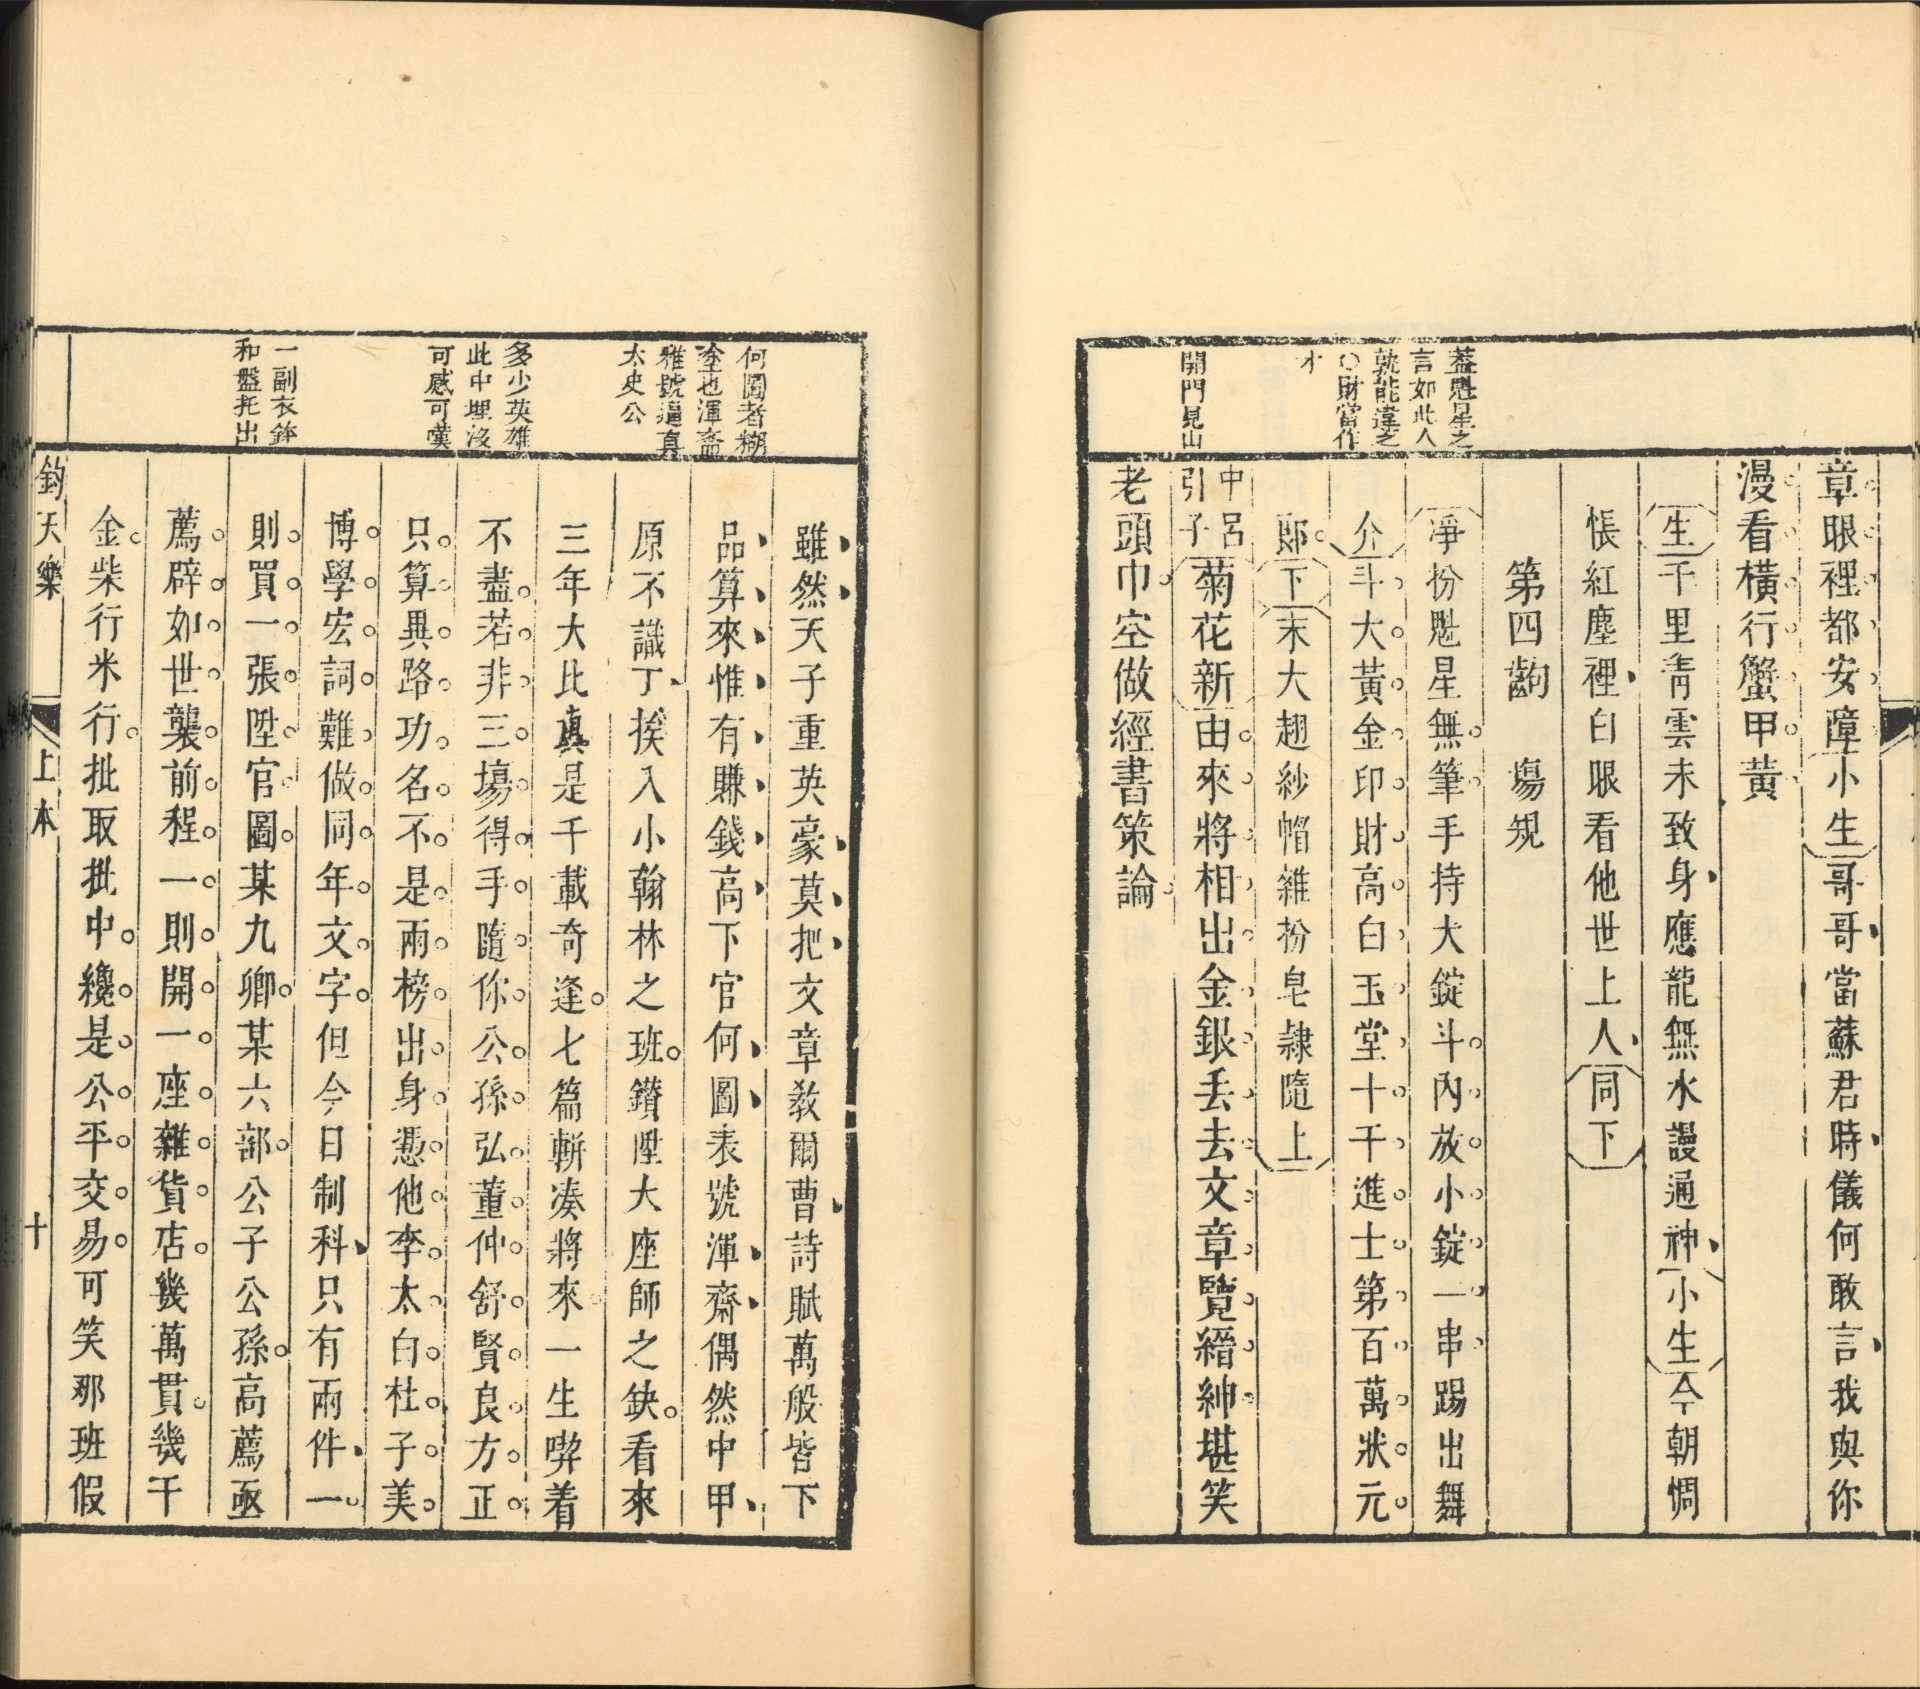 蓋魁星之
言如此人
孰能違之
○財當作
才
開門見山
章眼裡都安障小生哥哥當蘇君時儀何敢言我與你
漫看橫行蟹甲黃
生千里青雲未致身應龍無水謾通神小生今朝惆
悵紅塵裡白眼看他世上人同下
第四齣　場規
淨扮魁星無筆手持大錠斗內放小錠一串踢出舞
介斗大黃金印財高白玉堂十千進士第百萬狀元
郎下末大趐紗帽雜扮皂隸隨上
中呂引子菊花新由來將相出金銀丟去文章覽縉紳堪笑
老頭巾空做經書策論
何圖者糊
塗也渾齋
雅號逼真
太史公
多少英雄
此中埋沒
可感可嘆
一副衣鉢
和盤托出
雖然天子重英豪莫把文章敎爾曹詩賦萬般皆下
品算來惟有賺錢高下官何圖表號渾齋偶然中甲
原不識丁挨入小翰林之班鑽陞大座師之缺看來
三年大比真是千載奇逢七篇輧凑將來一生喫着
不盡若非三場得手隨你公孫弘董仲舒賢良方正
只算異路功名不是兩榜出身憑他李太白杜子美
博學宏詞難做同年文字但今日制科只有兩件一
則買一張陞官圖某九卿某六部公子公孫高薦亟
薦辟如世襲前程一則開一座雜貨店幾萬貫幾千
金柴行米行批取批中纔是公平交易可笑那班假
鈞天樂　上本　十